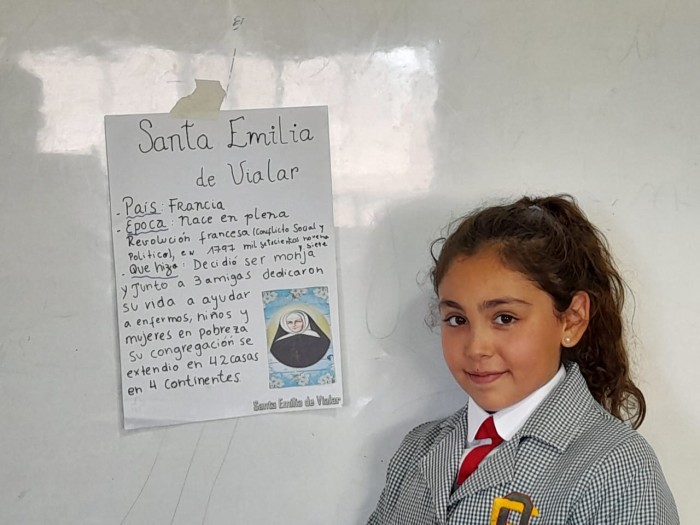 Santa Emilia
de Vialar
- País: Francia
- Época: Nace en plena
Revolución francesa (Conflicto Social y
Político), en 1797 mil setecientos noventa
y siete
- Que hizo: Decidió ser monja
y junto a 3 amigas dedicaron
su vida a ayudar
a enfermos, niños y
mujeres en pobreza
Su congregación se
extendio en 42 casas
en 4 continentes
Santa Emilia de Vialar